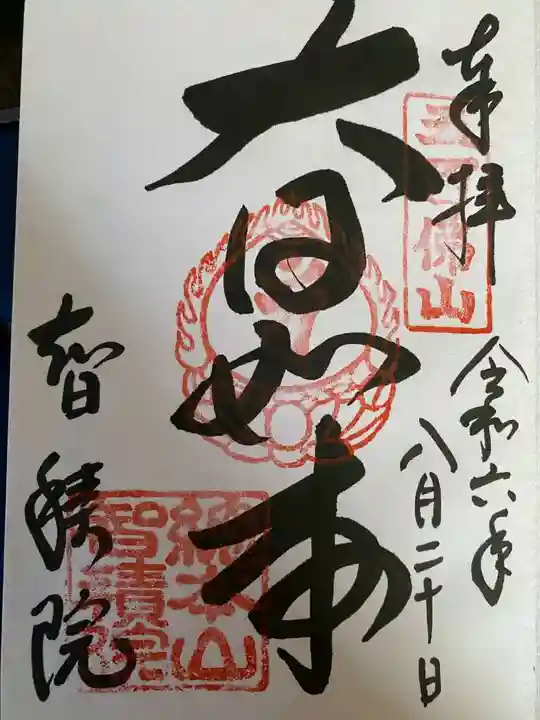 奉拝
令和六年
八月二十日
大日如来
智積院
総本山
智積院